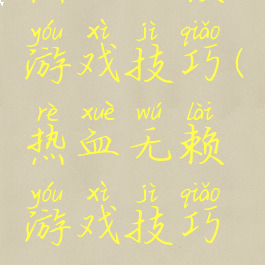 yóu xì jì qiǎo
游戏技巧(
rè xuè wú lài
热血无赖
yóu xì jì qiǎo
游戏技巧